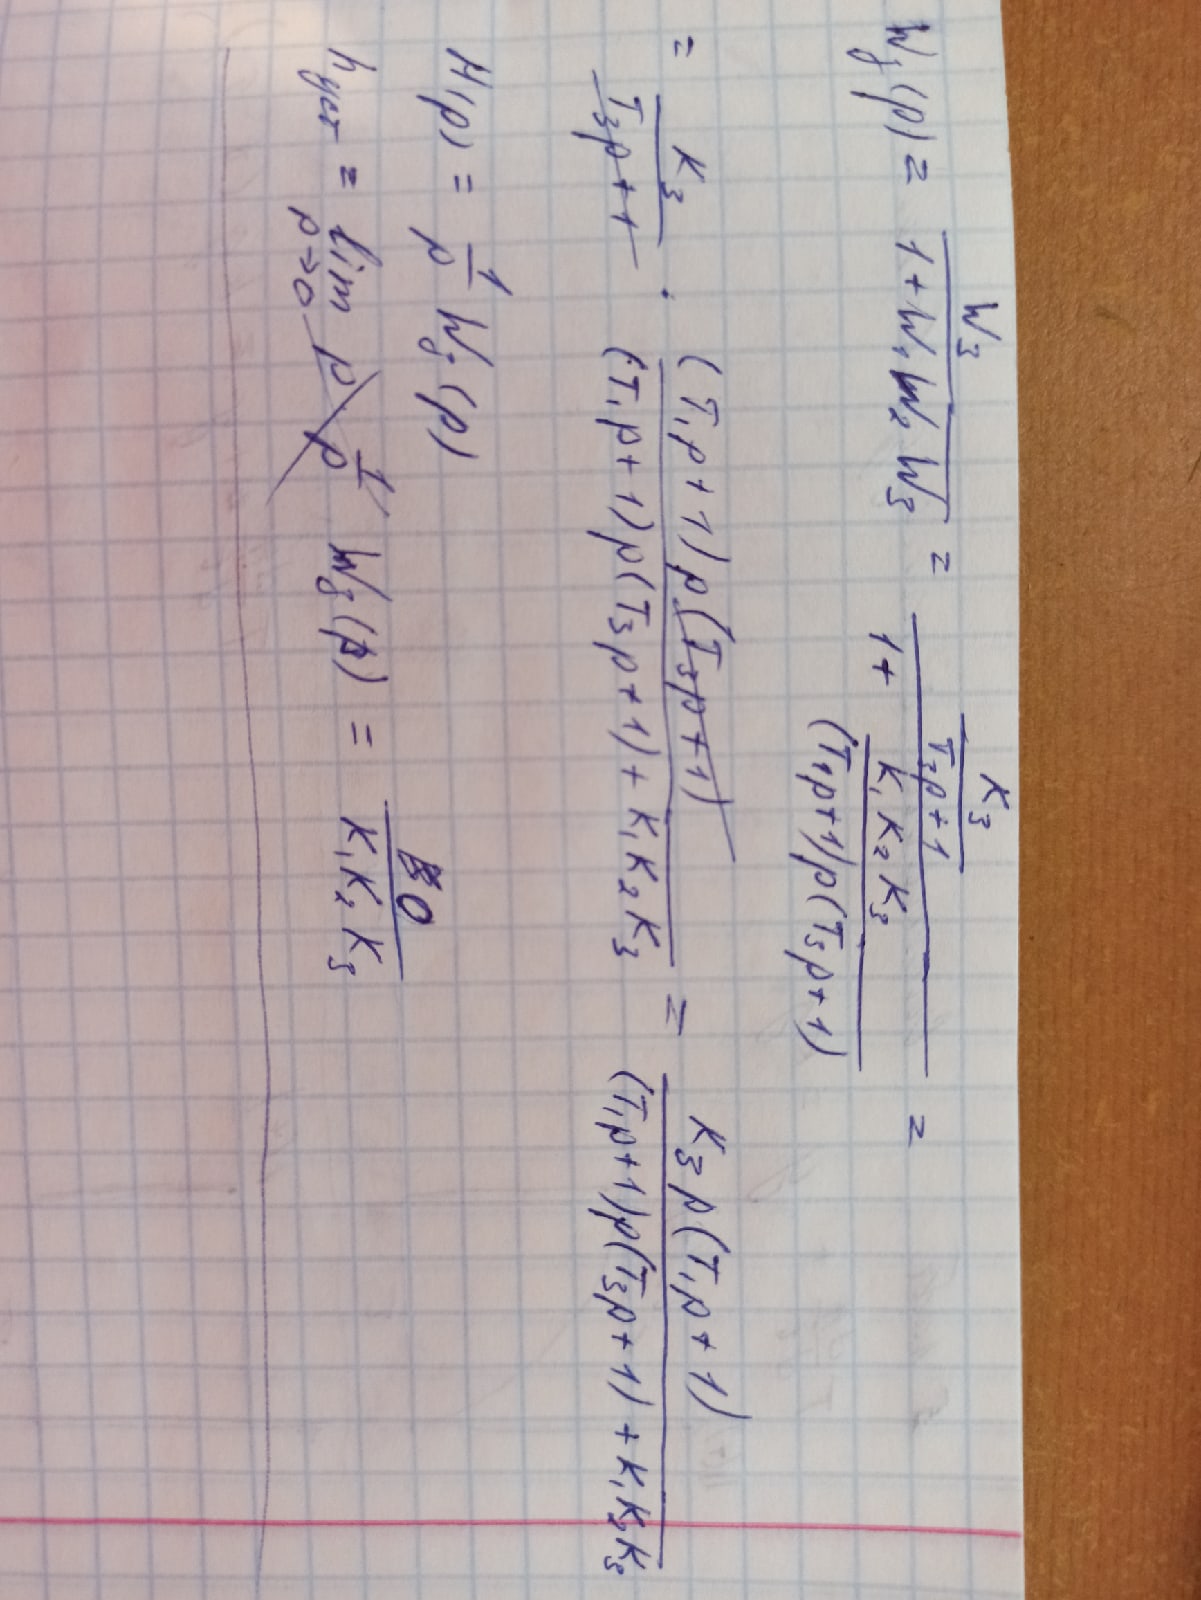 W_f(p) = W₃/(1+W₁W₂W₃) = (K₃/(T₃p+1))/(1+ K₁K₂K₃/((T₁p+1)p(T₃p+1))) =
= K₃/(T₃p+1) · ((T₁p+1)p(T₃p+1))/((T₁p+1)p(T₃p+1)+K₁K₂K₃) = K₃p(T₁p+1)/((T₁p+1)p(T₃p+1)+K₁K₂K₃)
H(p) = 1/p W_f(p)
hуст = lim p→0 p 1/p W_f(p) = 0/(K₁K₂K₃)